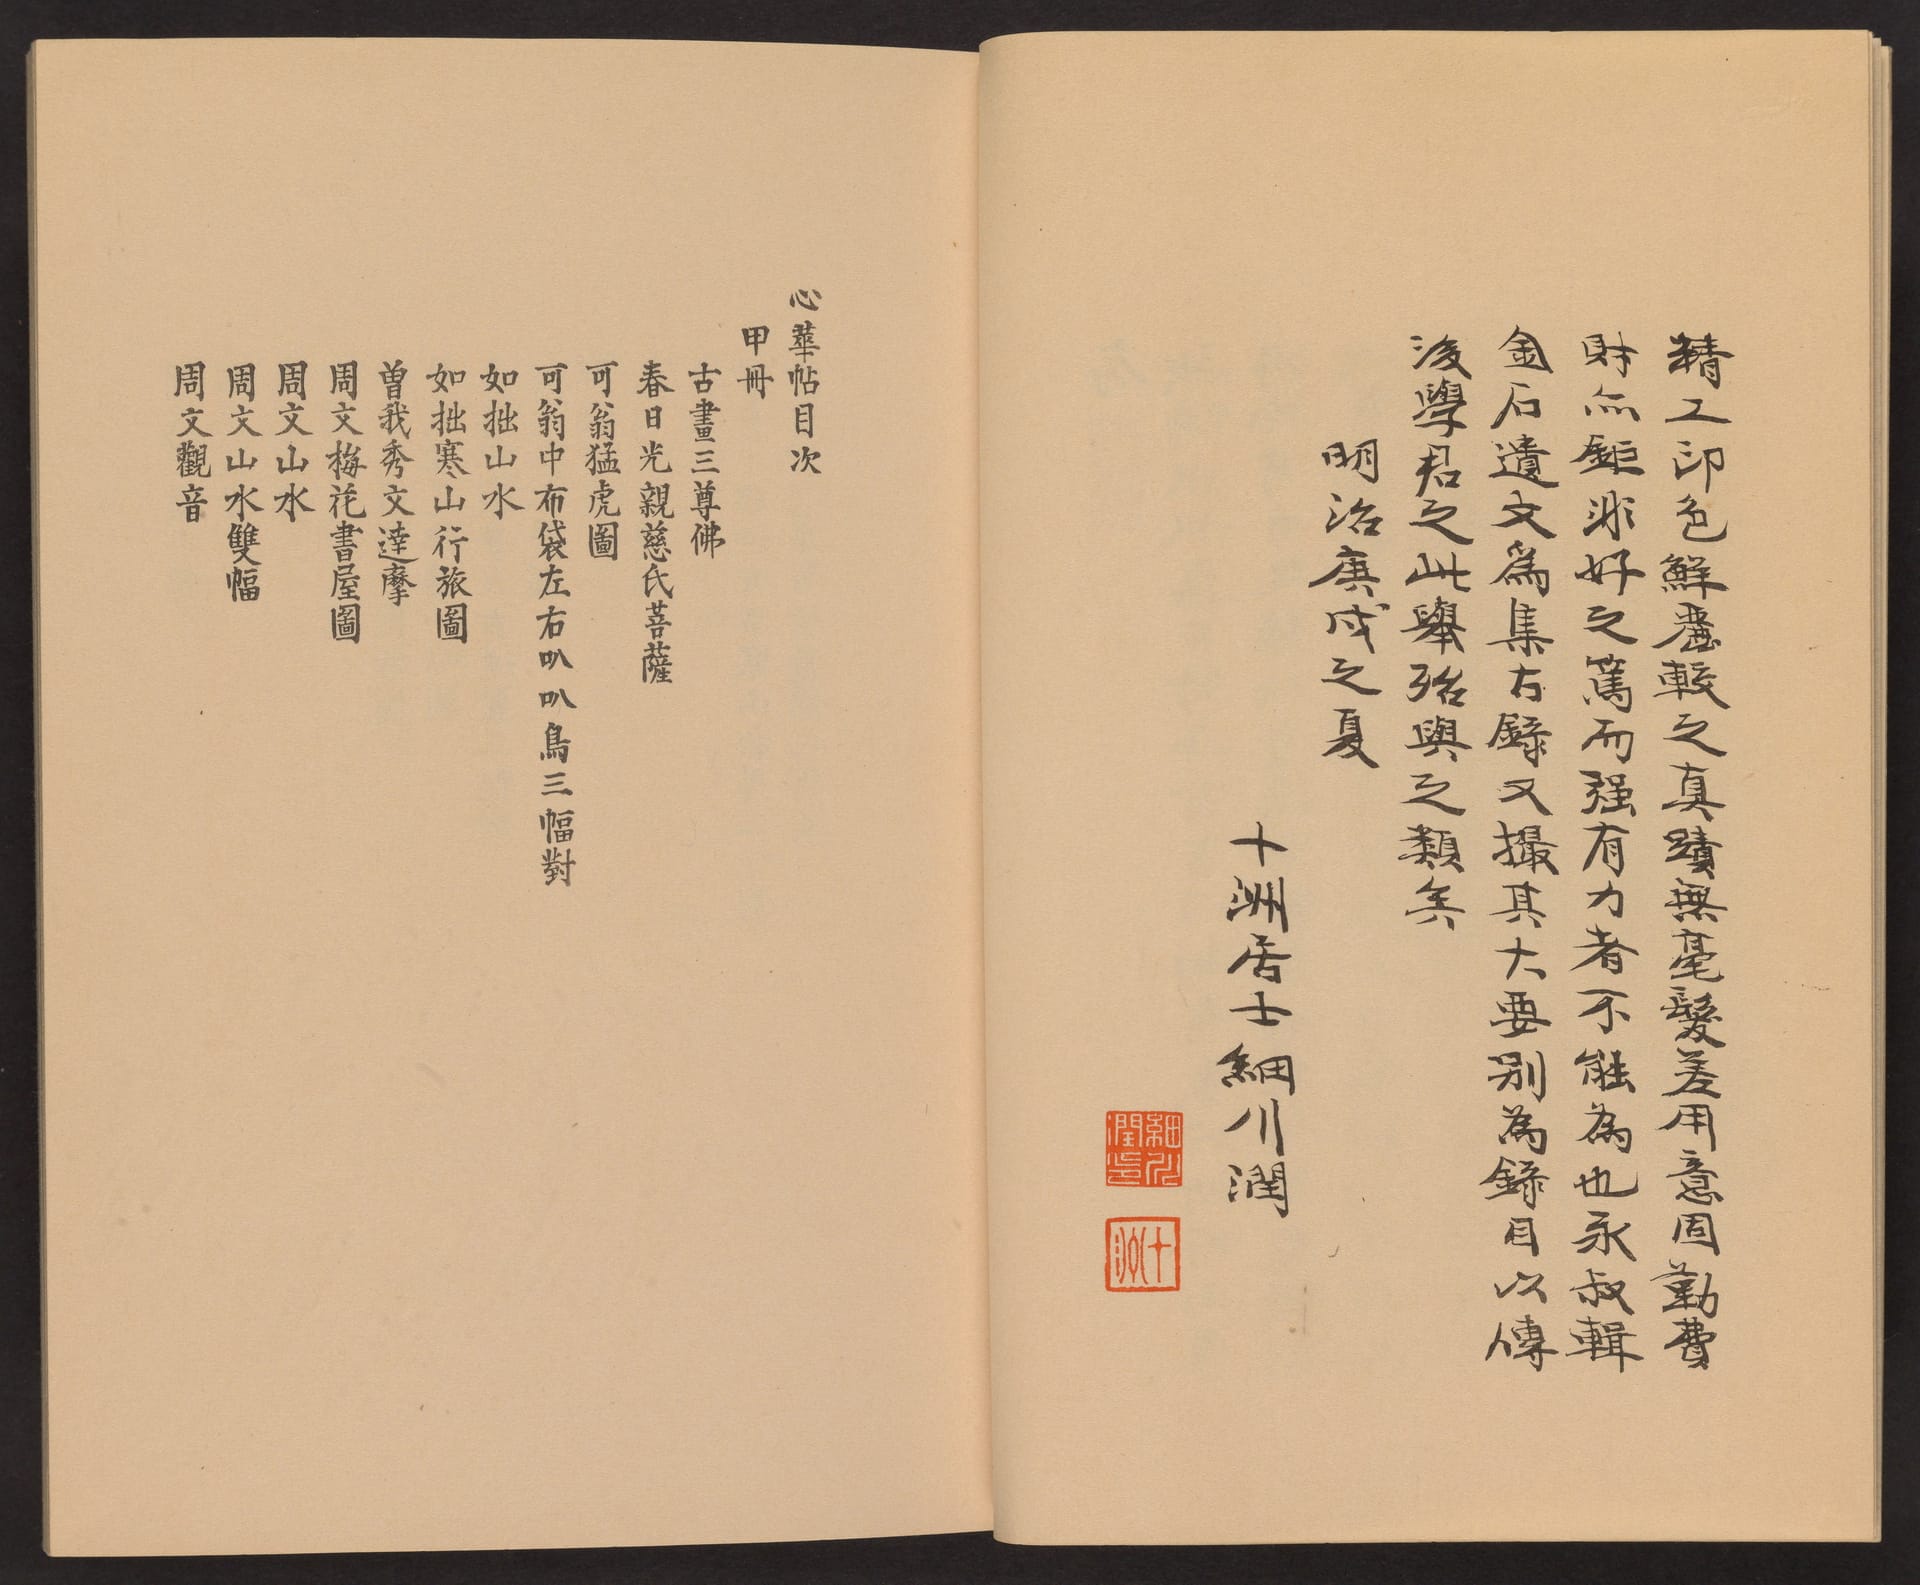 精工印色鮮麗較之真蹟無毫髮差用意固勤費
財亦鉅非好之篤而强有力者不能為也永叔輯
金石遺文爲集古錄又撮其大要別為錄目以傳
後學君之此舉殆與之類矣
明治庚戌之夏
十洲居士細川潤
細川潤印
十洲
心華帖目次
甲冊
古畫三尊佛
春日光親慈氏菩薩
可翁猛虎圖
可翁中布袋左右叭叭鳥三幅對
如拙山水
如拙寒山行旅圖
曾我秀文達摩
周文梅花書屋圖
周文山水
周文山水雙幅
周文觀音